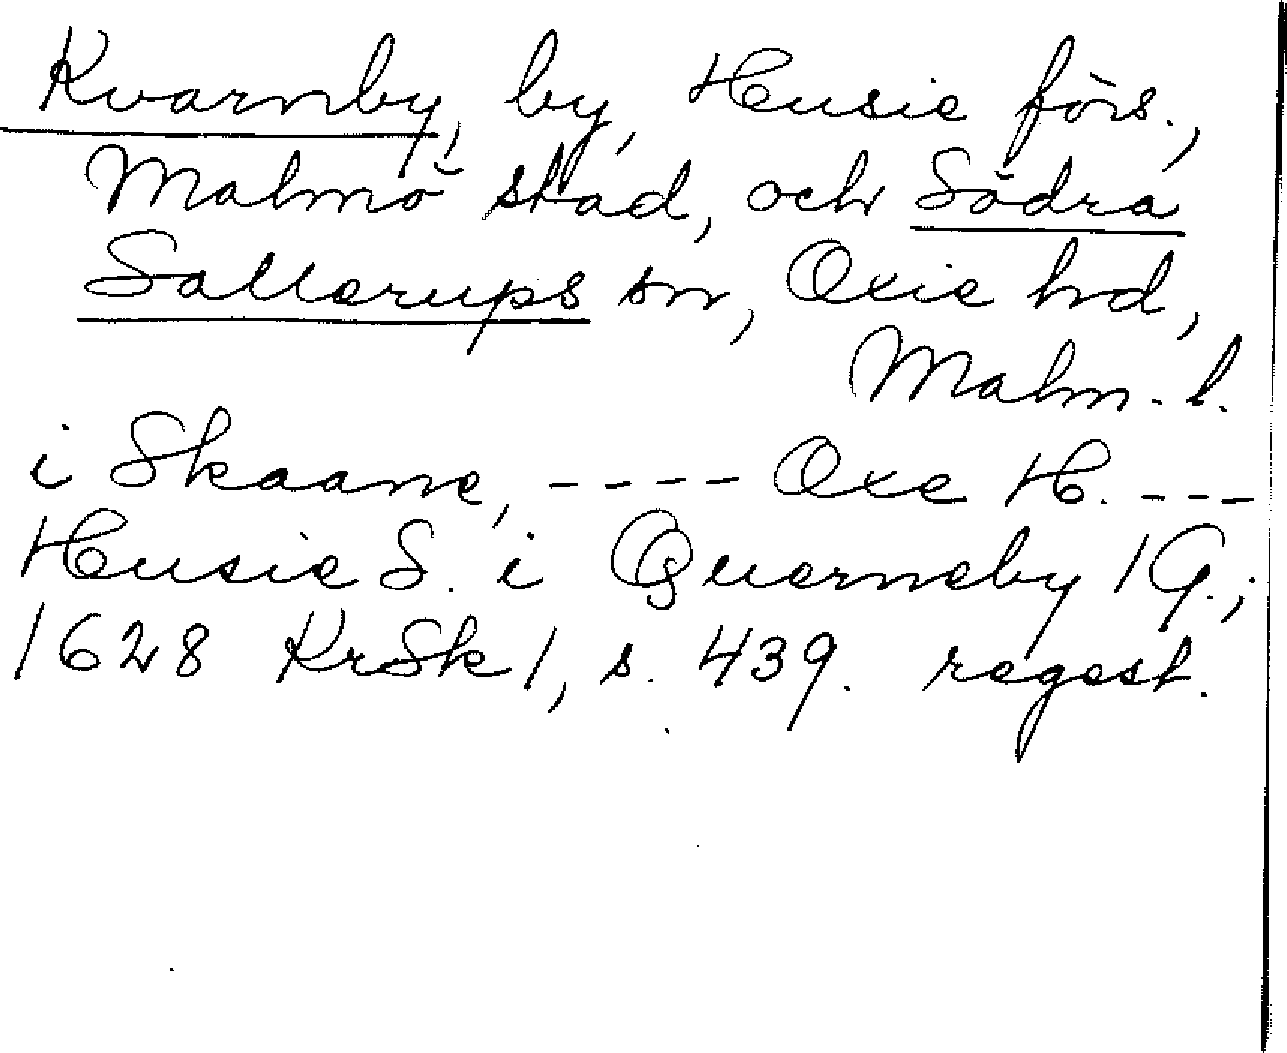 Kvarnby, by, Husie förs.,
Malmö stad, och Södra
Sallerups sn, Oxie hd,
Malm. l.
i Skaane, ---- Oxe H. ---
Husie S. i Querneby 1 G.;
1628 KrSk 1, s. 439. regest.